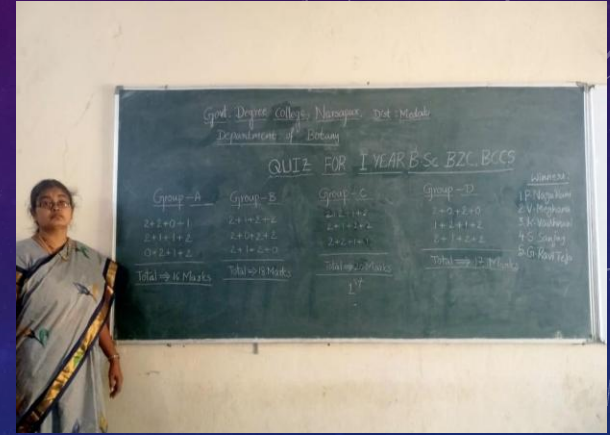 Govt. Degree College, Narsapur, Dist: Medak
Department of Botany
QUIZ FOR I YEAR B.Sc BZC, BCCS
Group-A
2+2+0+1
2+1+1+2
0+2+1+2
Total => 16 Marks
Group-B
2+1+2+2
2+0+2+2
2+1+2+0
Total => 18 Marks
Group-C
2+2+2
Total => Marks
1st
Group-D
2+0+2+0
1+2+1+2
2+1+2+2
Total => 17 Marks
Winners:
1.P.
2.V. Meghana
3.K.
4.S. Sanjay
5.G. Ravi Teja